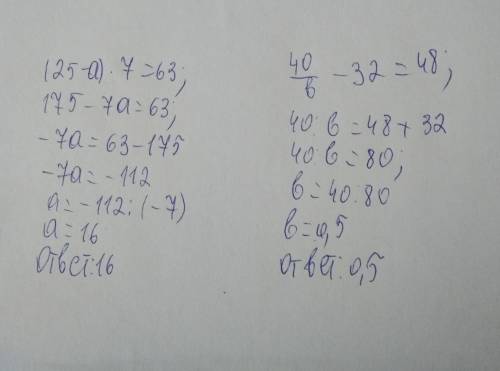 (25-а)·7=63;
175-7а=63;
-7а=63-175
-7а=-112
а=-112:(-7)
а=16
ответ:16
40/в -32=48;
40:в=48+32
40:в=80;
в=40:80
в=0,5
ответ:0,5